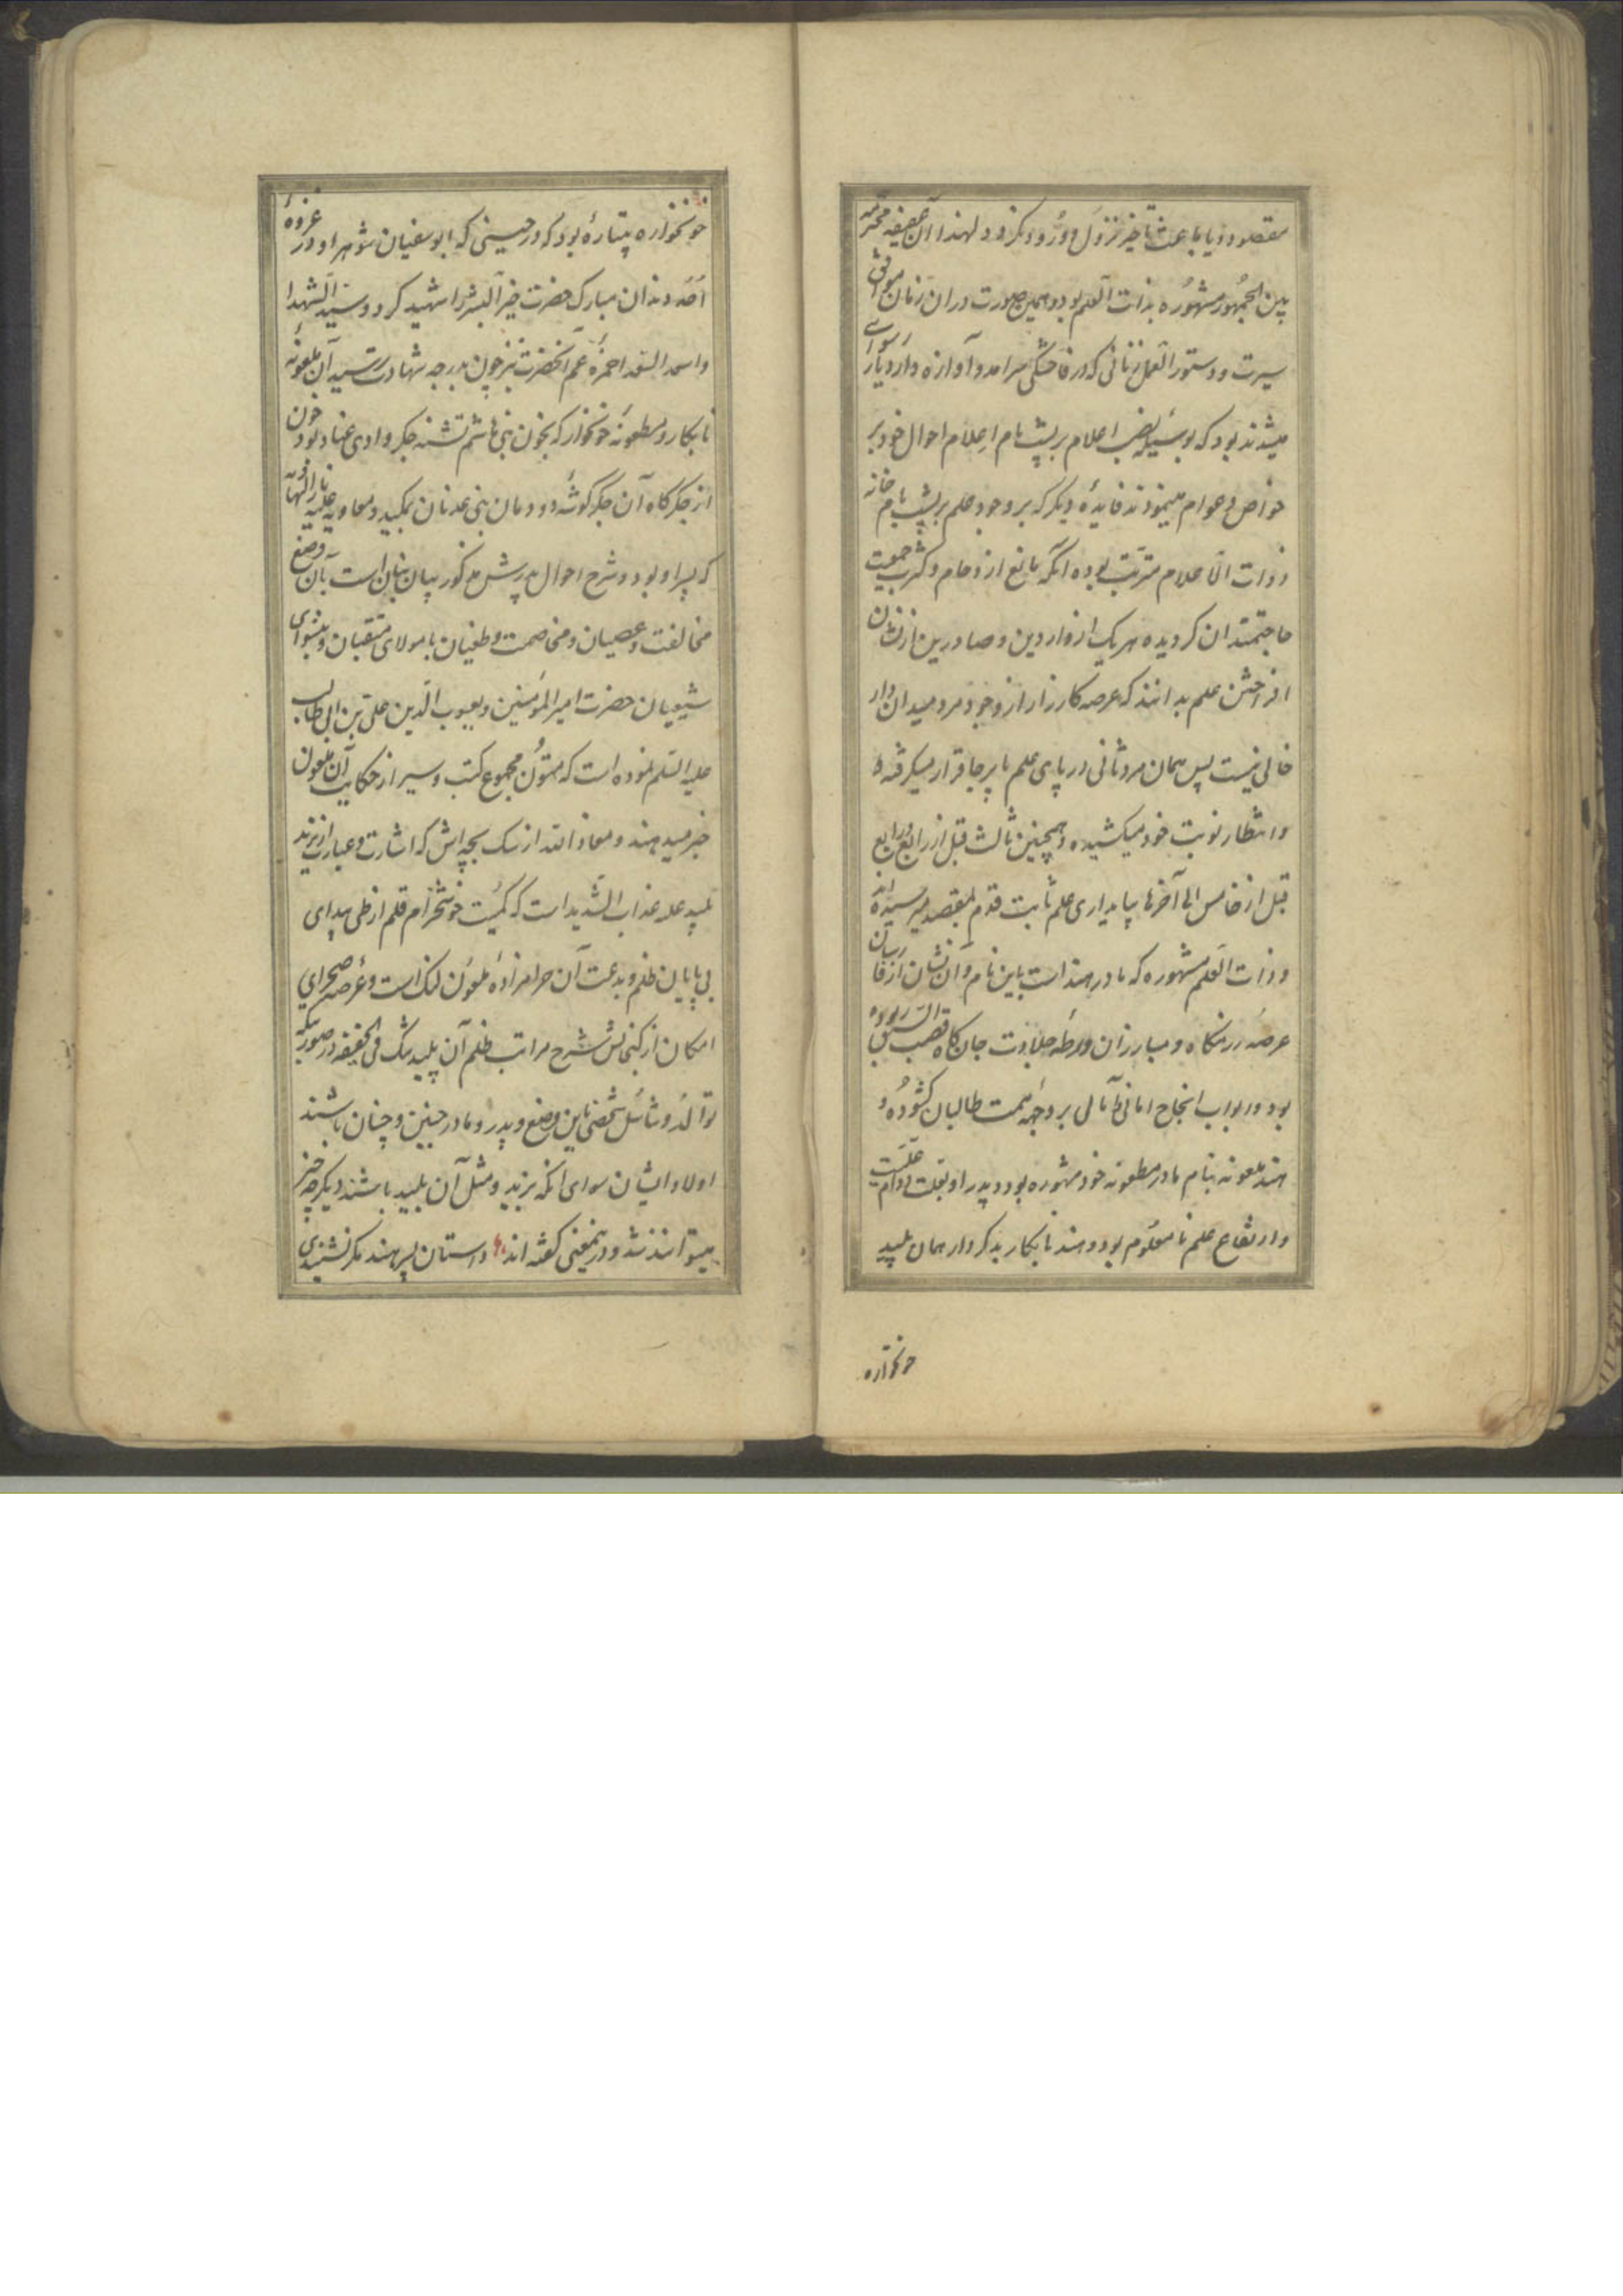 مقصود و یا باعث تاخیر نزول و ورود نکردد لهذا آن عفیفه محترمه
بین الجمهور مشهوره بذات العلم بود و همین صورت در ان زمان موافق
سیرت و دستور العمل زنانی که در فاحشکی سرامد و آوازه دار دیار رسوائی
میشدند بود که بوسیله نصب اعلام بر پشت بام اعلام احوال خود بر
خواص و عوام مینمودند فایدهٔ دیکر که بر وجود علم بر پشت بام خانه
ذوات الاعلام مترتب بوده انکه مانع ازدحام و کثرت جمعیت
حاجتمندان کردیده هر یک از واردین و صادرین از نشان
افراختن علم بدانند که عرصه کارزار از وجود مرد میدان دار
خالی نیست پس همان مرد ثانی در پای علم پا برجا قرار میکرفته و
و انتظار نوبت خود میکشیده و همچنین ثالث قبل از رابع و رابع
قبل از خامس الی آخرها بپایداری علم ثابت قدم بمقصد میرسیده اند
و ذات العلم مشهوره که مادر هند است باین نام و ان نشان از فارسان
عرصه رزمکاه و مبارزان ورطه جلادت جان کاه قصب السبق ربوده
بود و ابواب انجاح امانی و آمال بر وجهه همت طالبان کشوده و
هند ملعونه بنام مادر مطعونه خود مشهوره بود و پدر او بعلت دوام علت
و ارتفاع علم نامعلوم بود و هند نابکار بدکردار همان پلید
خونخواره
خونخواره پتیاره بود که در حینی که ابوسفیان شوهر او در غزوهٔ
احد دندان مبارک حضرت خیر البشر را شهید کرد و سید الشهدا
و اسد الله حمزه عم آنحضرت نیز چون بدرجه شهادت رسید آن ملعونه
نابکار و مطعونه خونخوار که بخون بنی هاشم تشنه جکر وادی عناد بود خون
از جکرکاه آن جکرکوشه دودمان بنی عدنان بمکید و معاویه علیه النار و الهاویه
که پسر او بود و شرح احوال پدرش مذکور بیان بنان است بآن وضع
مخالفت و عصیان و مخاصمت و طغیان با مولای متقیان و پیشوای
شیعیان حضرت امیر المؤمنین و یعسوب الدین علی بن ابی طالب
علیه السلم نموده است که متون مجموع کتب و سیر از حکایت آن ملعون
خبر میدهند و معاذ الله از سک بچه اش که اشارت و عبارت از یزید
پلید علیه عذاب الشدید است که کمیت خوشخرام قلم از طی بیدای
بی پایان ظلم و بدعت آن حرامزاده ملعون لنک است و عرصه صحرای
امکان از کنجائش شرح مراتب ظلم آن پلید تنک فی الحقیقه در صورتیکه
توالد و تناسل شخصی باین وضع و پدر و مادر چنین و چنان باشند
اولاد ایشان سوای انکه یزید و مثل آن پلید باشند دیکر چه چیز
میتوانند شد و در ینمعنی کفته اند داستان پسر هند مکر نشنیدی